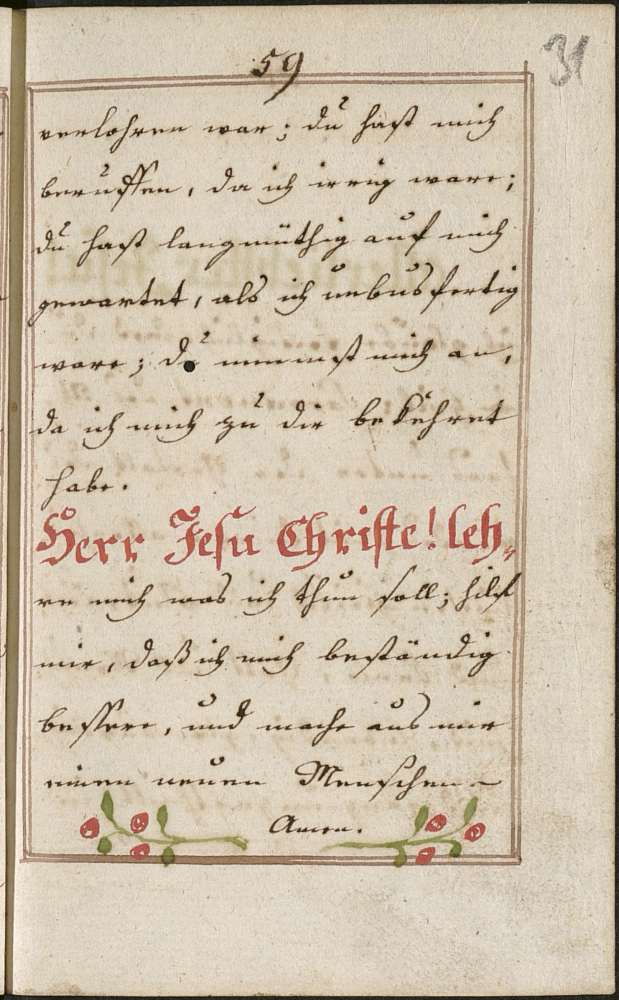 59
31
verlohren war; du hast mich
beruffen, da ich irrig ware;
du hast langmüthig auf mich
gewartet, als ich unbusfertig
ware; du nimmst mich an,
da ich mich zu dir bekehret
habe.
Herr Jesu Christe! leh„
re mich was ich thun soll; hilf
mir, daß ich mich beständig
bessere, und mache aus mir
einen neuen Menschen
Amen.